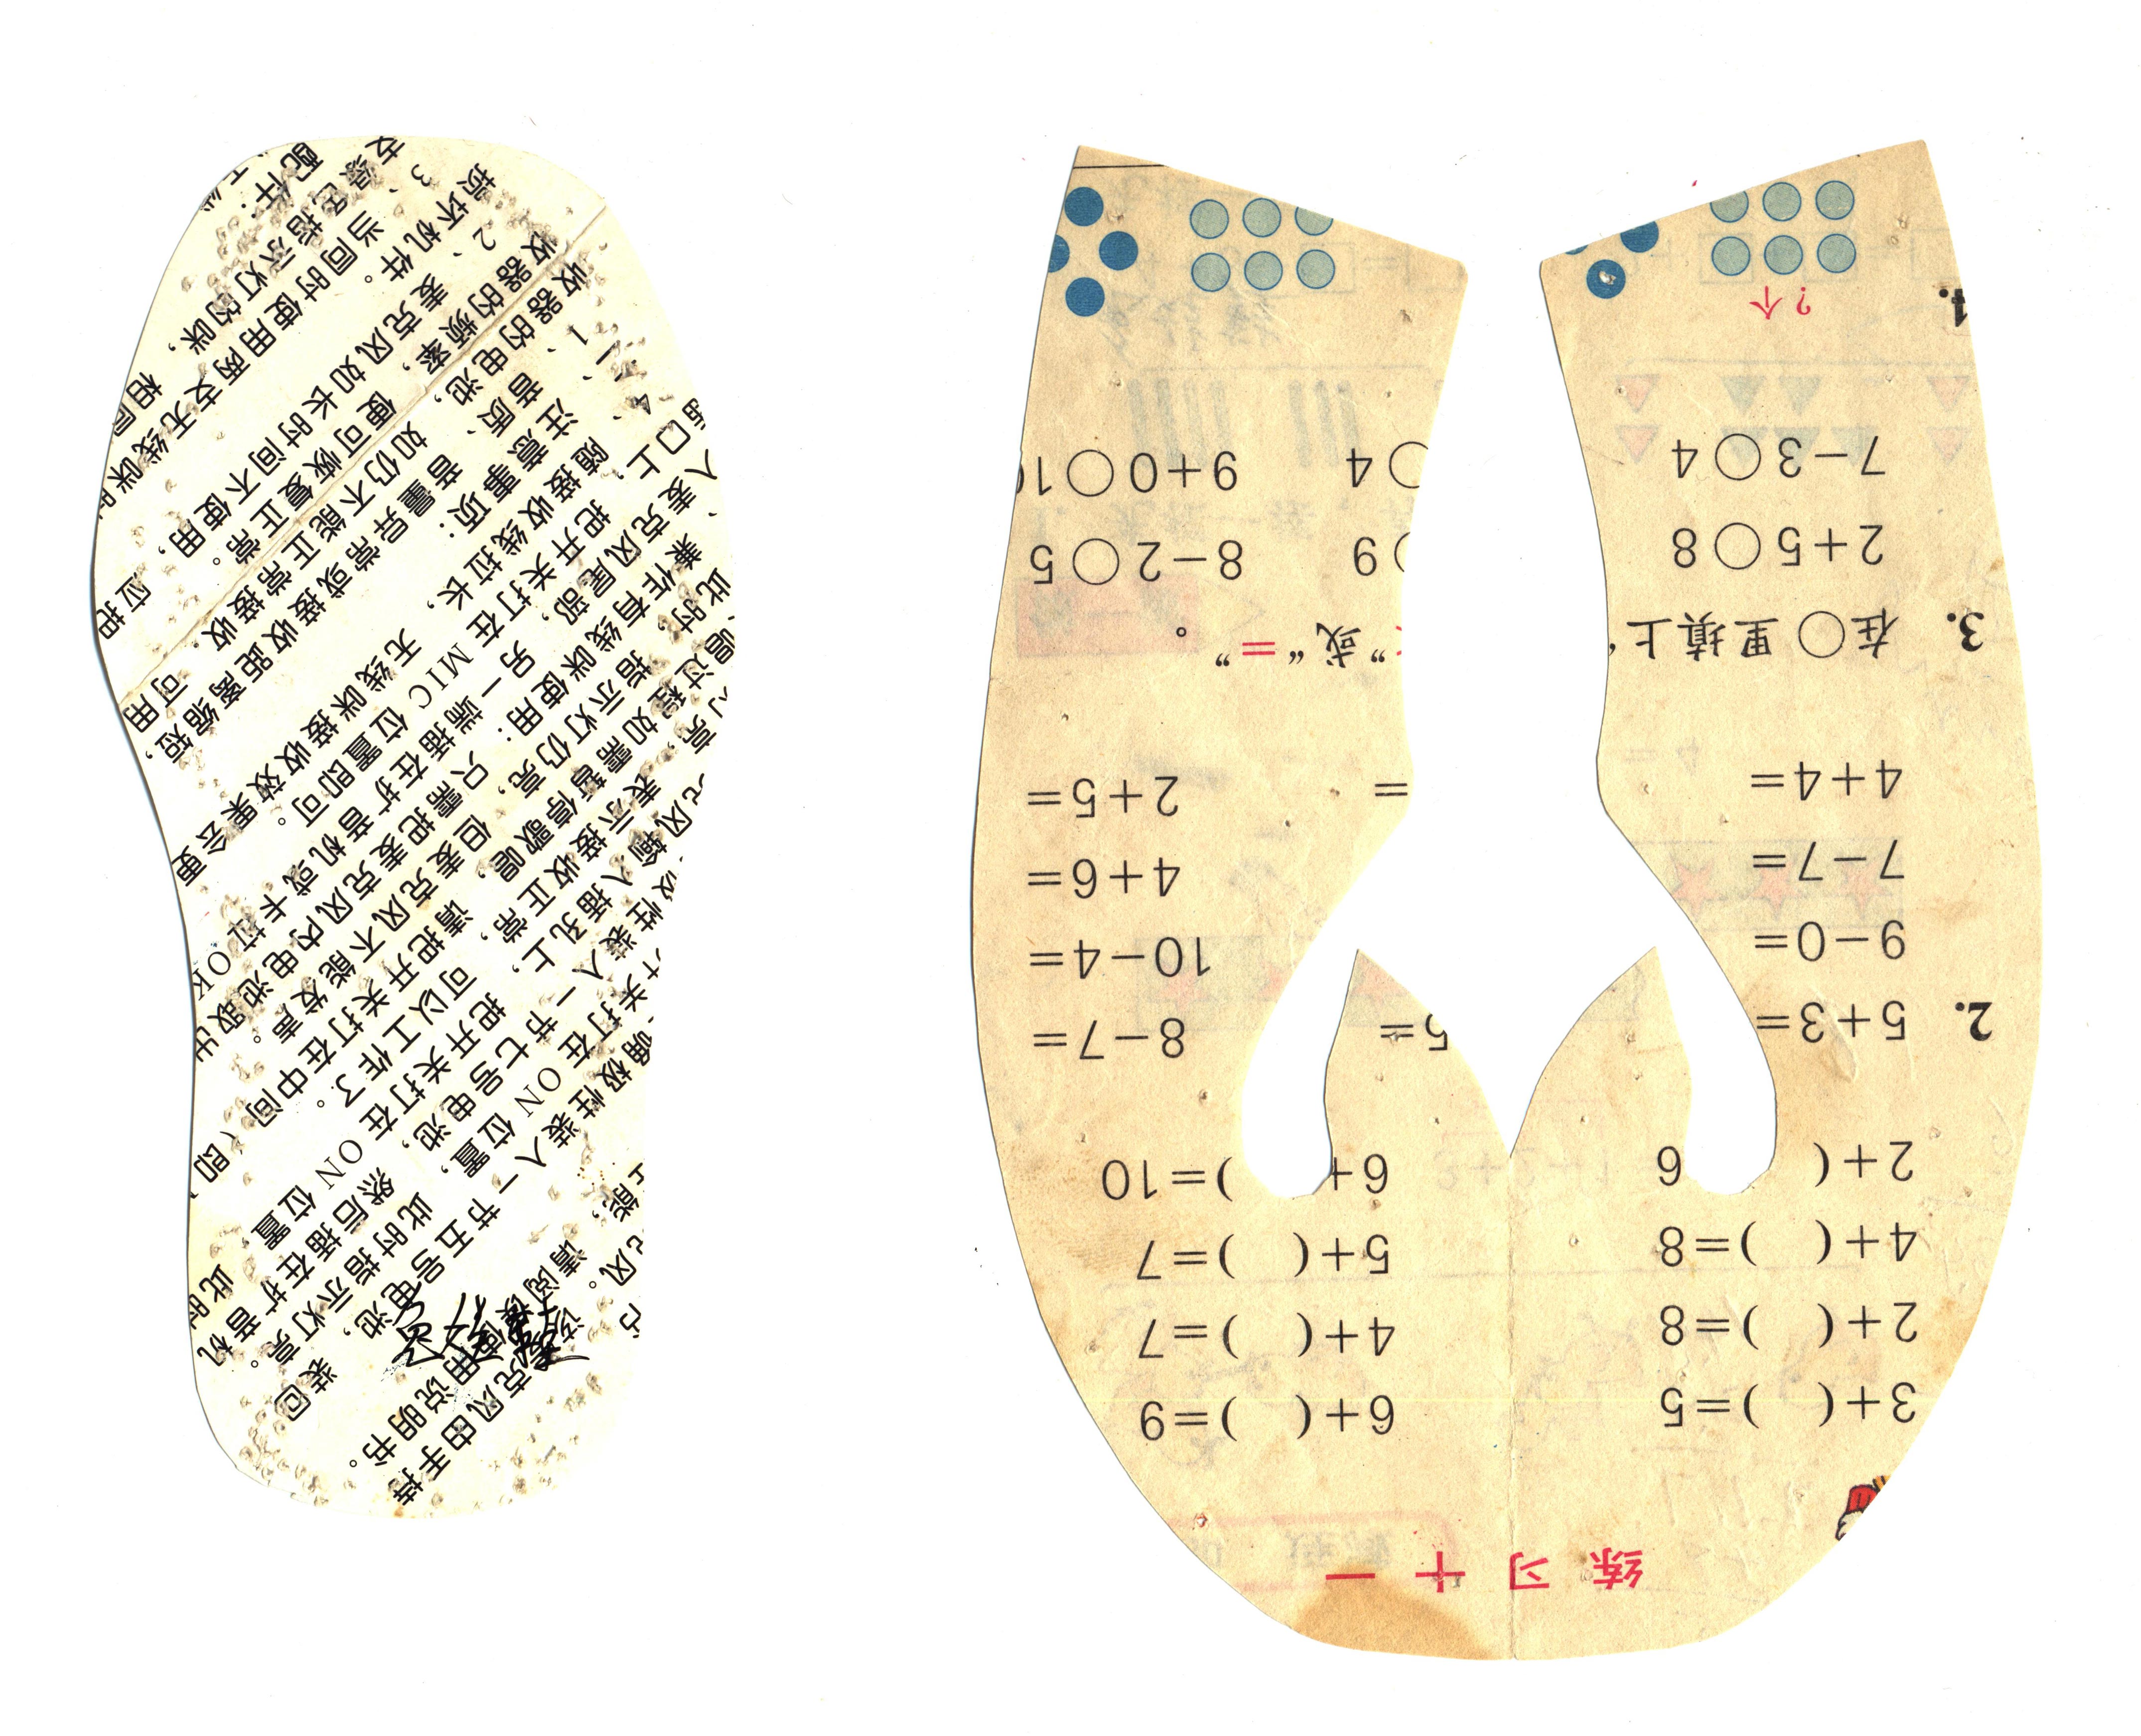 练 习 十 一
3+(  )=5    6+(  )=9
2+(  )=8    4+(  )=7
4+(  )=8    5+(  )=7
2+(  6    6+  )=10
2. 5+3=    5=    8−7=
9−0=    10−4=
7−7=    4+6=
4+4=    =    2+5=
3. 在○里填上“ ”或“=”。
2+5○8    ○9    8−2○5
7−3○4    ○4    9+0○10
4.
?个
克风由手持
能，请阅读使用说明书。
极性装入一节五号电池，装回
关打在 ON 位置，此时指示灯亮。
性装入一节七号电池，然后插在扩音机
风输入插孔上，把开关打在 ON 位置 此时
亮，表示接收正常，可以工作了。
唱过程如需暂停歌唱，请把开关打在中间（即
此时，指示灯仍亮，但麦克风不能发声。
兼作有线咪使用：只需把麦克风内电池取出
麦克风尾部，另一端插在扩音机或卡拉 OK
口上，把开关打在 MIC 位置即可。
随接收线拉长，无线咪接收效果会更
注意事项：
1、音质、音量异常或接收距离缩短，可用
收器的电池，如仍不能正常接收，
收器的频率，便可恢复正常。
2、麦克风如长时间不使用，应把
损坏机件。
3、当同时使用两支无线咪时
支绿色指示灯的咪，相同
配件：